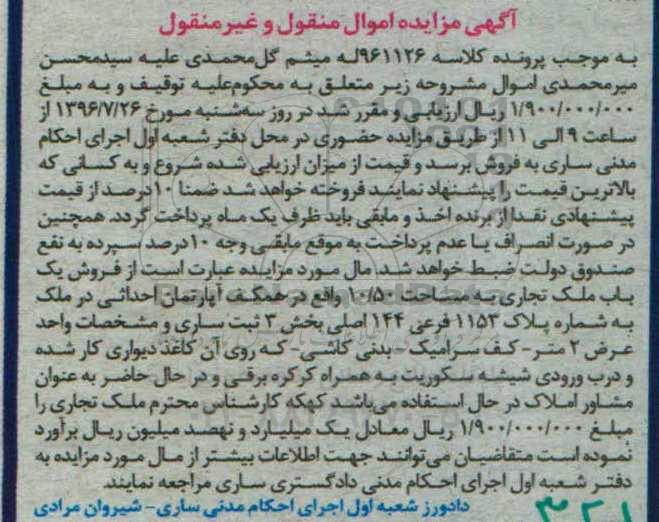 آگهی مزایده اموال منقول و غیر منقول
به موجب پرونده کلاسه ۹۶۱۱۲۶له میثم گل‌محمدی علیه سیدمحسن
میرمحمدی اموال مشروحه زیر متعلق به محکوم‌علیه توقیف و به مبلغ
۱/۹۰۰/۰۰۰/۰۰۰ ریال ارزیابی و مقرر شد در روز سه‌شنبه مورخ ۱۳۹۶/۷/۲۶ از
ساعت ۹ الی ۱۱ از طریق مزایده حضوری در محل دفتر شعبه اول اجرای احکام
مدنی ساری به فروش برسد و قیمت از میزان ارزیابی شده شروع و به کسانی که
بالاترین قیمت را پیشنهاد نمایند فروخته خواهد شد ضمنا ۱۰درصد از قیمت
پیشنهادی نقدا از برنده اخذ و مابقی باید ظرف یک ماه پرداخت گردد. همچنین
در صورت انصراف یا عدم پرداخت به موقع مابقی وجه ۱۰درصد سپرده به نفع
صندوق دولت ضبط خواهد شد. مال مورد مزایده عبارت است از فروش یک
باب ملک تجاری به مساحت ۱۰/۵۰ واقع در همکف آپارتمان احداثی در ملک
به شماره پلاک ۱۱۵۳ فرعی ۱۴۴ اصلی بخش ۳ ثبت ساری و مشخصات واحد
عرض ۲ متر- کف سرامیک - بدنی کاشی- که روی آن کاغذ دیواری کار شده
و درب ورودی شیشه سکوریت به همراه کرکره برقی و در حال حاضر به عنوان
مشاور املاک در حال استفاده می‌باشد کهکه کارشناس محترم ملک تجاری را
مبلغ ۱/۹۰۰/۰۰۰/۰۰۰ ریال معادل یک میلیارد و نهصد میلیون ریال برآورد
نموده است متقاضیان می‌توانند جهت اطلاعات بیشتر از مال مورد مزایده به
دفتر شعبه اول اجرای احکام مدنی دادگستری ساری مراجعه نمایند.
دادورز شعبه اول اجرای احکام مدنی ساری- شیروان مرادی